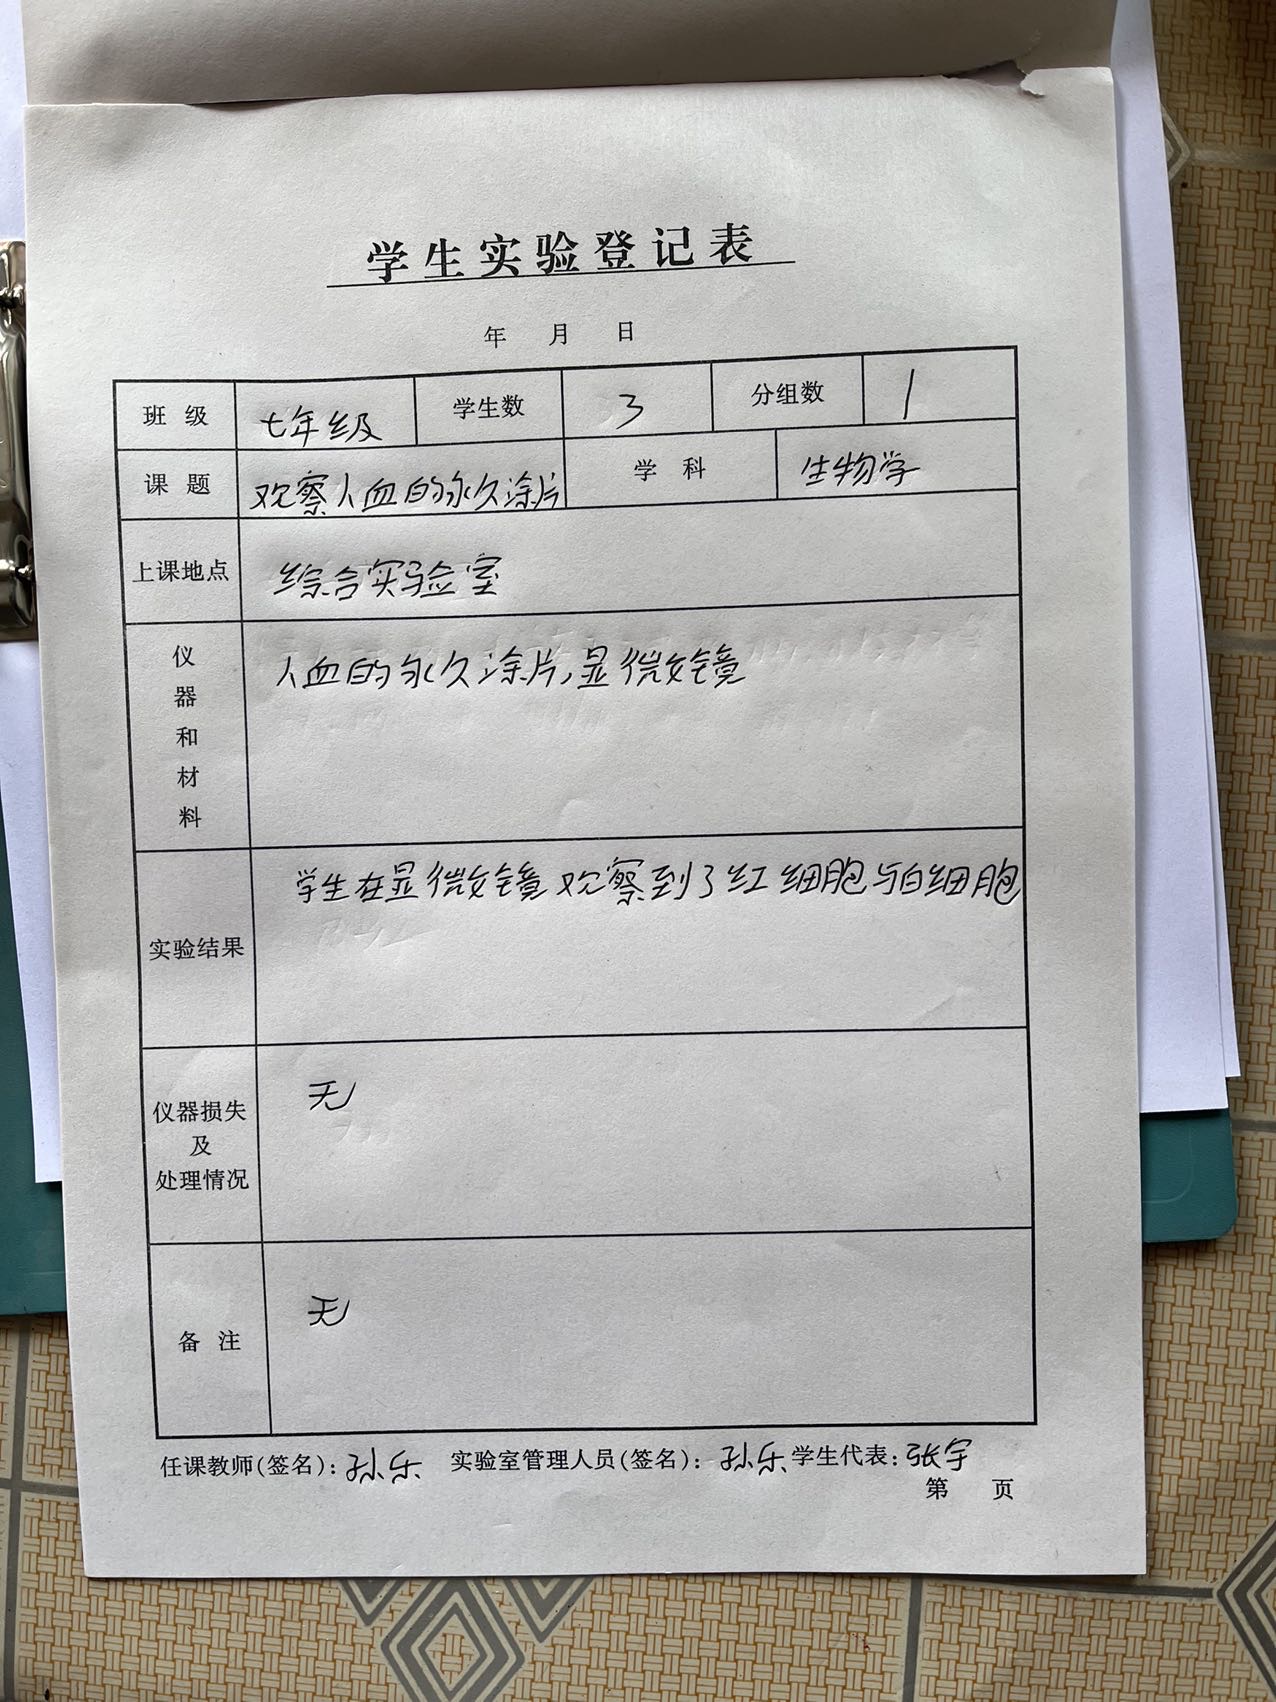 学生实验登记表
年 月 日
班 级 七年级 学生数 3 分组数 1
课 题 观察人血的永久涂片 学 科 生物学
上课地点 综合实验室
仪器和材料 人血的永久涂片,显微镜
实验结果 学生在显微镜观察到了红细胞与白细胞
仪器损失
及
处理情况 无
备 注 无
任课教师(签名): 孙乐 实验室管理人员(签名): 孙乐 学生代表: 张宇
第 页